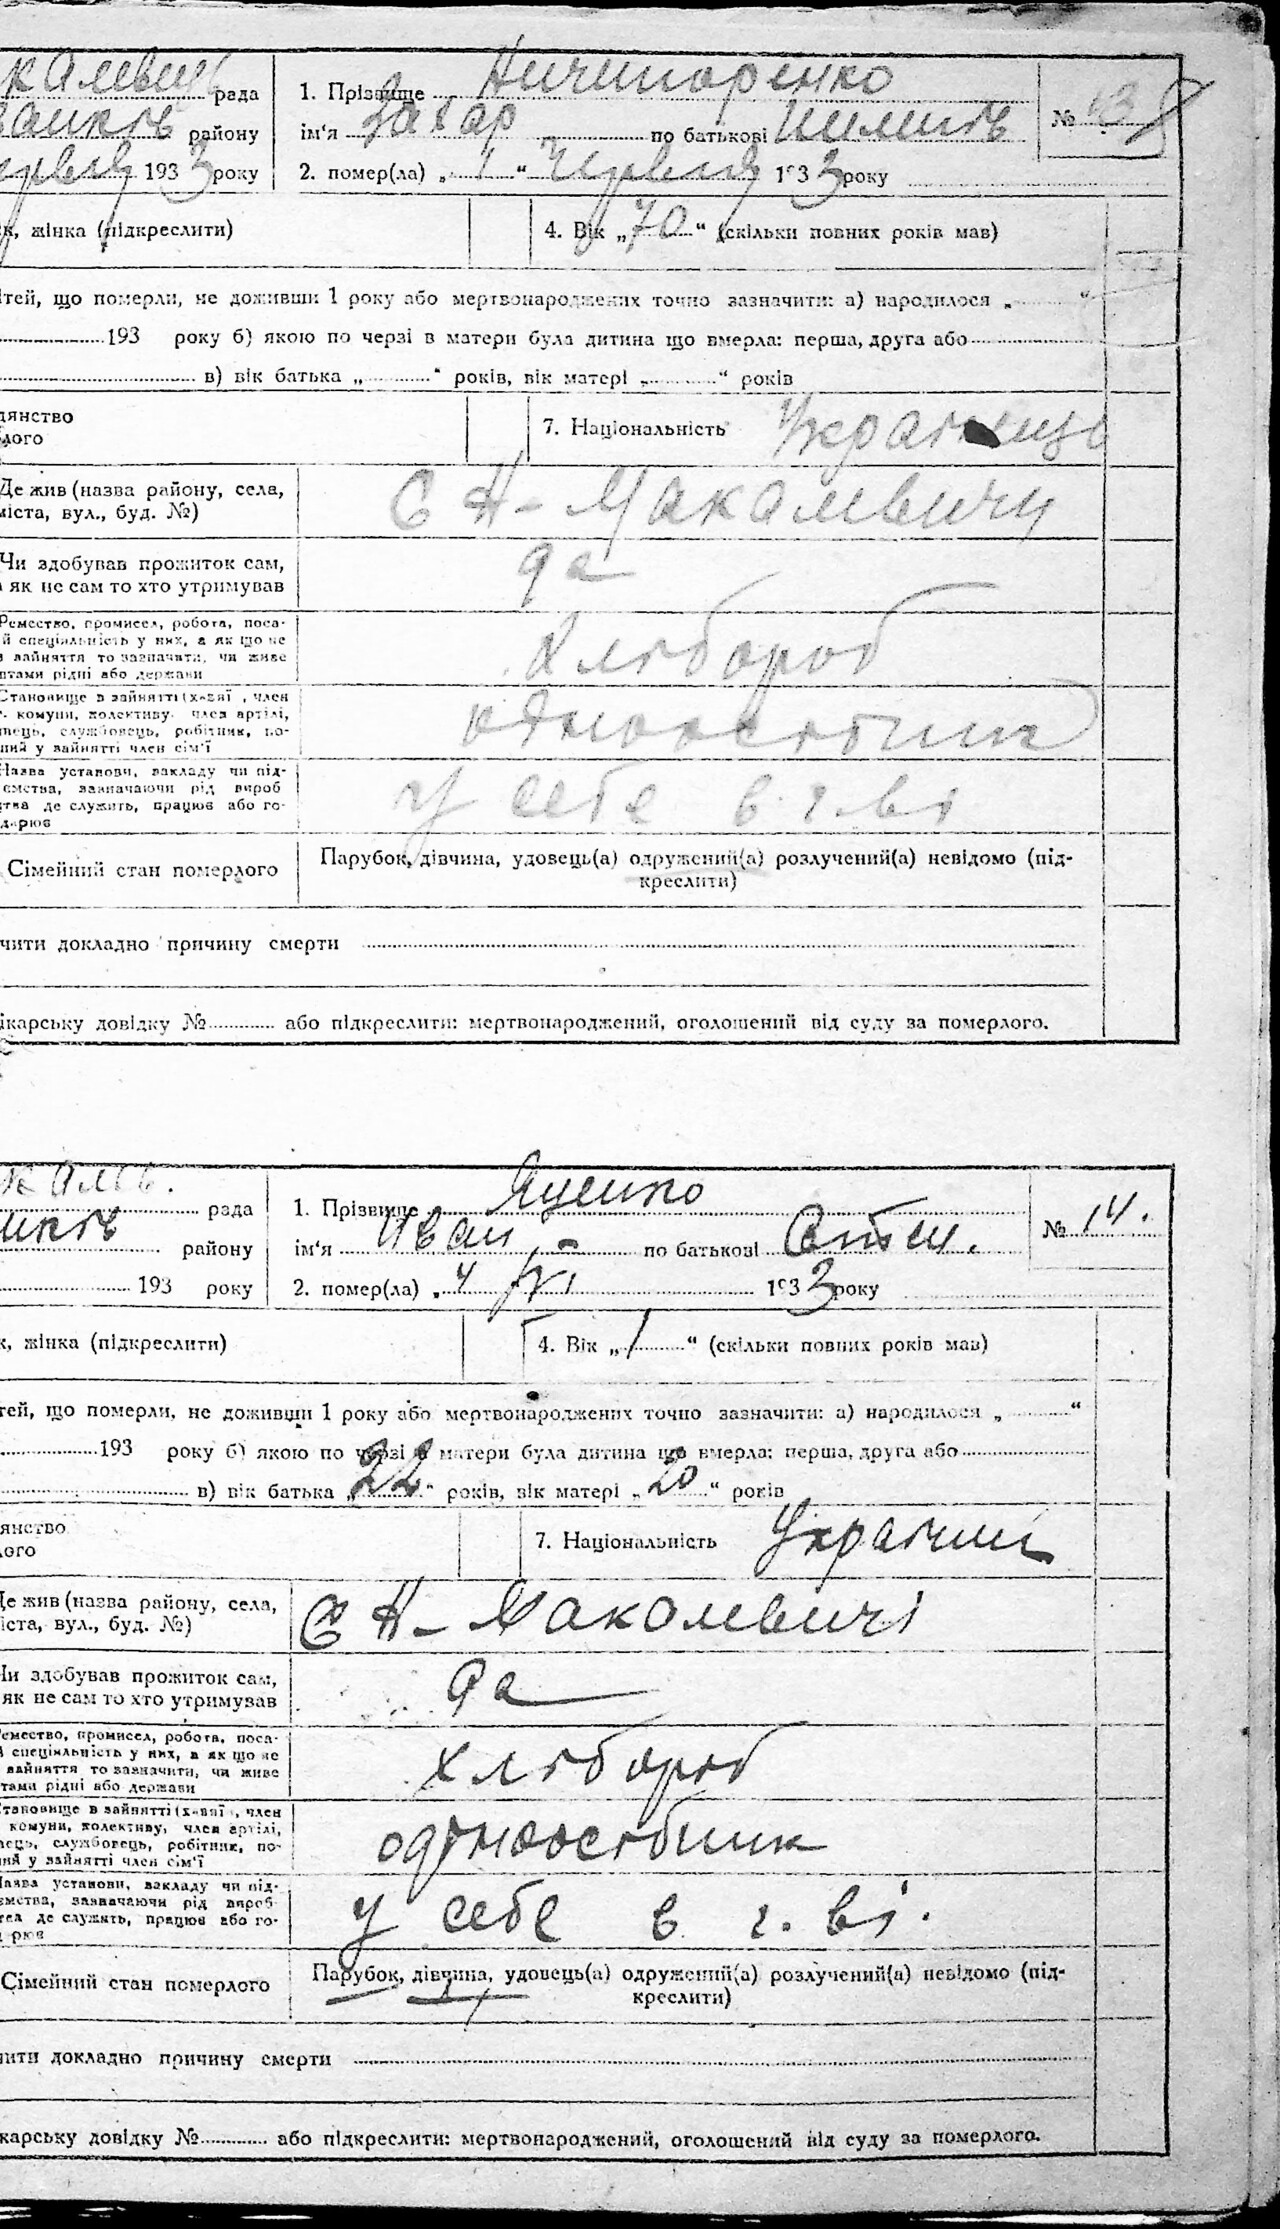 рада 1. Прізвище Ничипоренко
районУ ім'я Захар по батькові Пилипів №
193 3 року 2. помер(ла) „ 1 “ Червня 193 3 року
жінка (підкреслити) 4. Вік „ 70 “ (скільки повних років мав)
тей, що померли, не доживши 1 року або мертвонароджених точно зазначити: а) народилося „ “
193 року б) якою по черзі в матери була дитина що вмерла: перша, друга або
в) вік батька „ “ років, вік матері „ “ років
дянство
лого 7. Національність Українць
Де жив (назва району, села,
міста, вул., буд. №) С Н-Макалевичи
Чи здобував прожиток сам,
як не сам то хто утримував да
Ремество, промисел, робота, поса-
й спеціяльність у них, а як що не
зайняття то зазначити, чи живе
штами рідні або держави Хлібороб
Становище в зайнятті (х-ваї , член
комуни, колективу, член артілі,
вець, службовець, робітник, по-
ний у зайнятті член сім'ї одноосібник
Назва установи, закладу чи під-
ємства, зазначаючи рід вироб
тва де служить, працює або го-
дарює у себе в г. ві
Сімейний стан померлого Парубок, дівчина, удовець(а) одружений(а) розлучений(а) невідомо (під-
креслити)
чити докладно причину смерти
ікарську довідку № або підкреслити: мертвонароджений, оголошений від суду за померлого.
рада 1. Прізвище Яценко
району ім'я Иван по батькові Степ. № 14.
193 року 2. помер(ла) „ 4 / VI 193 3 року
к, жінка (підкреслити) 4. Вік „ 1 “ (скільки повних років мав)
тей, що померли, не доживши 1 року або мертвонароджених точно зазначити: а) народилося „ “
193 року б) якою по черзі в матери була дитина що вмерла: перша, друга або
в) вік батька „ 22 “ років, вік матері „ 20 “ років
янство
ого 7. Національність Українц
Де жив (назва району, села,
іста, вул., буд. №) С Н-Макалевичі
Чи здобував прожиток сам,
як не сам то хто утримував да
емество, промисел, робота, поса-
й спеціяльність у них, а як що не
зайняття то зазначити, чи живе
тами рідні або держави хлібороб
Становище в зайнятті (х-ваї , член
комуни, колективу, член артілі,
вець, службовець, робітник, по-
ний у зайнятті член сім'ї одноосібник
Назва установи, закладу чи під-
ємства, зазначаючи рід вироб-
тва де служить, працює або го-
рює у себе в г. ві.
Сімейний стан померлого Парубок, дівчина, удовець(а) одружений(а) розлучений(а) невідомо (під-
креслити)
чити докладно причину смерти
карську довідку № або підкреслити: мертвонароджений, оголошений від суду за померлого.